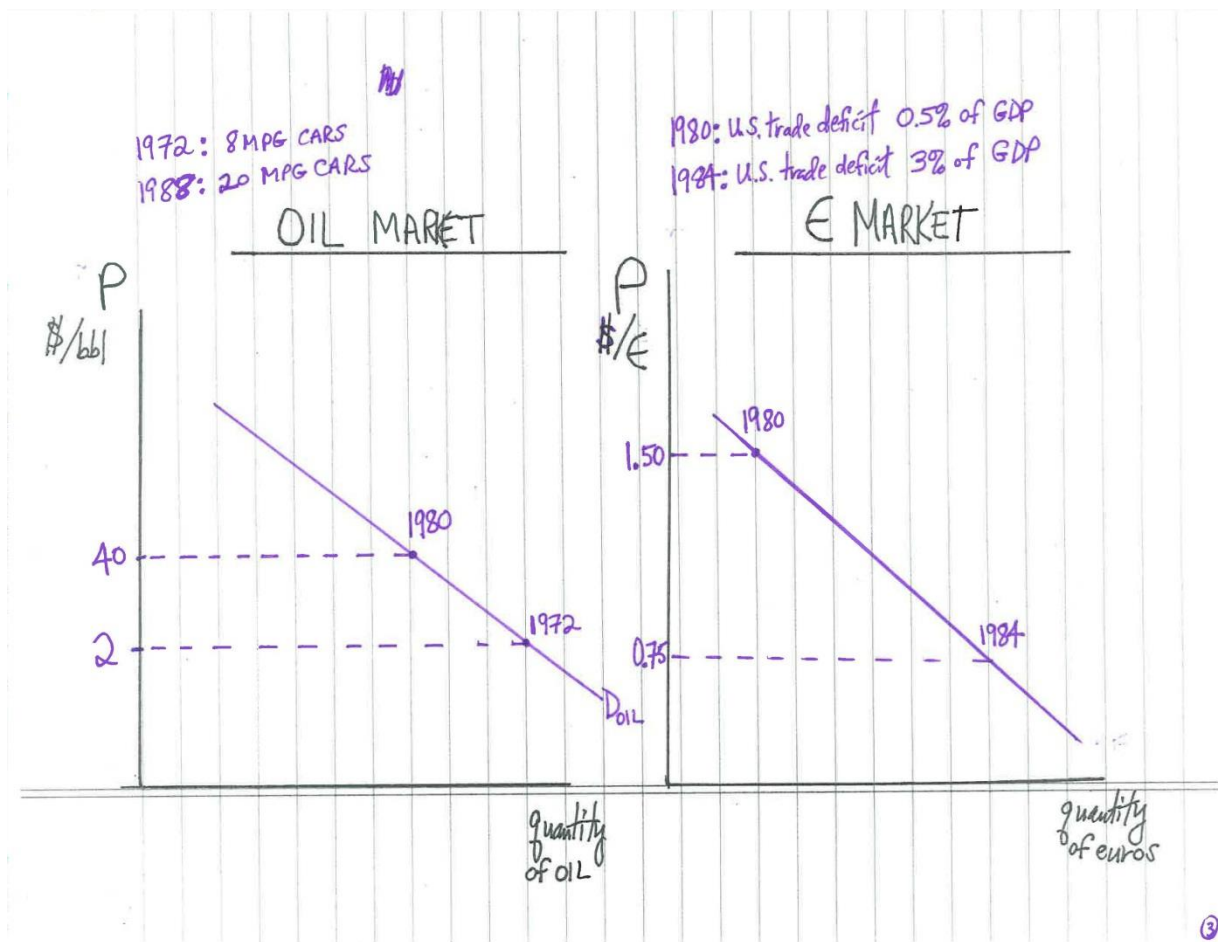 1972: 8 MPG CARS
1988: 20 MPG CARS
OIL MARKET
P
$/bbl
1980
40
1972
2
DOIL
quantity
of OIL
1980: U.S. trade deficit 0.5% of GDP
1984: U.S. trade deficit 3% of GDP
€ MARKET
P
$/€
1980
1.50
1984
0.75
quantity
of euros
3